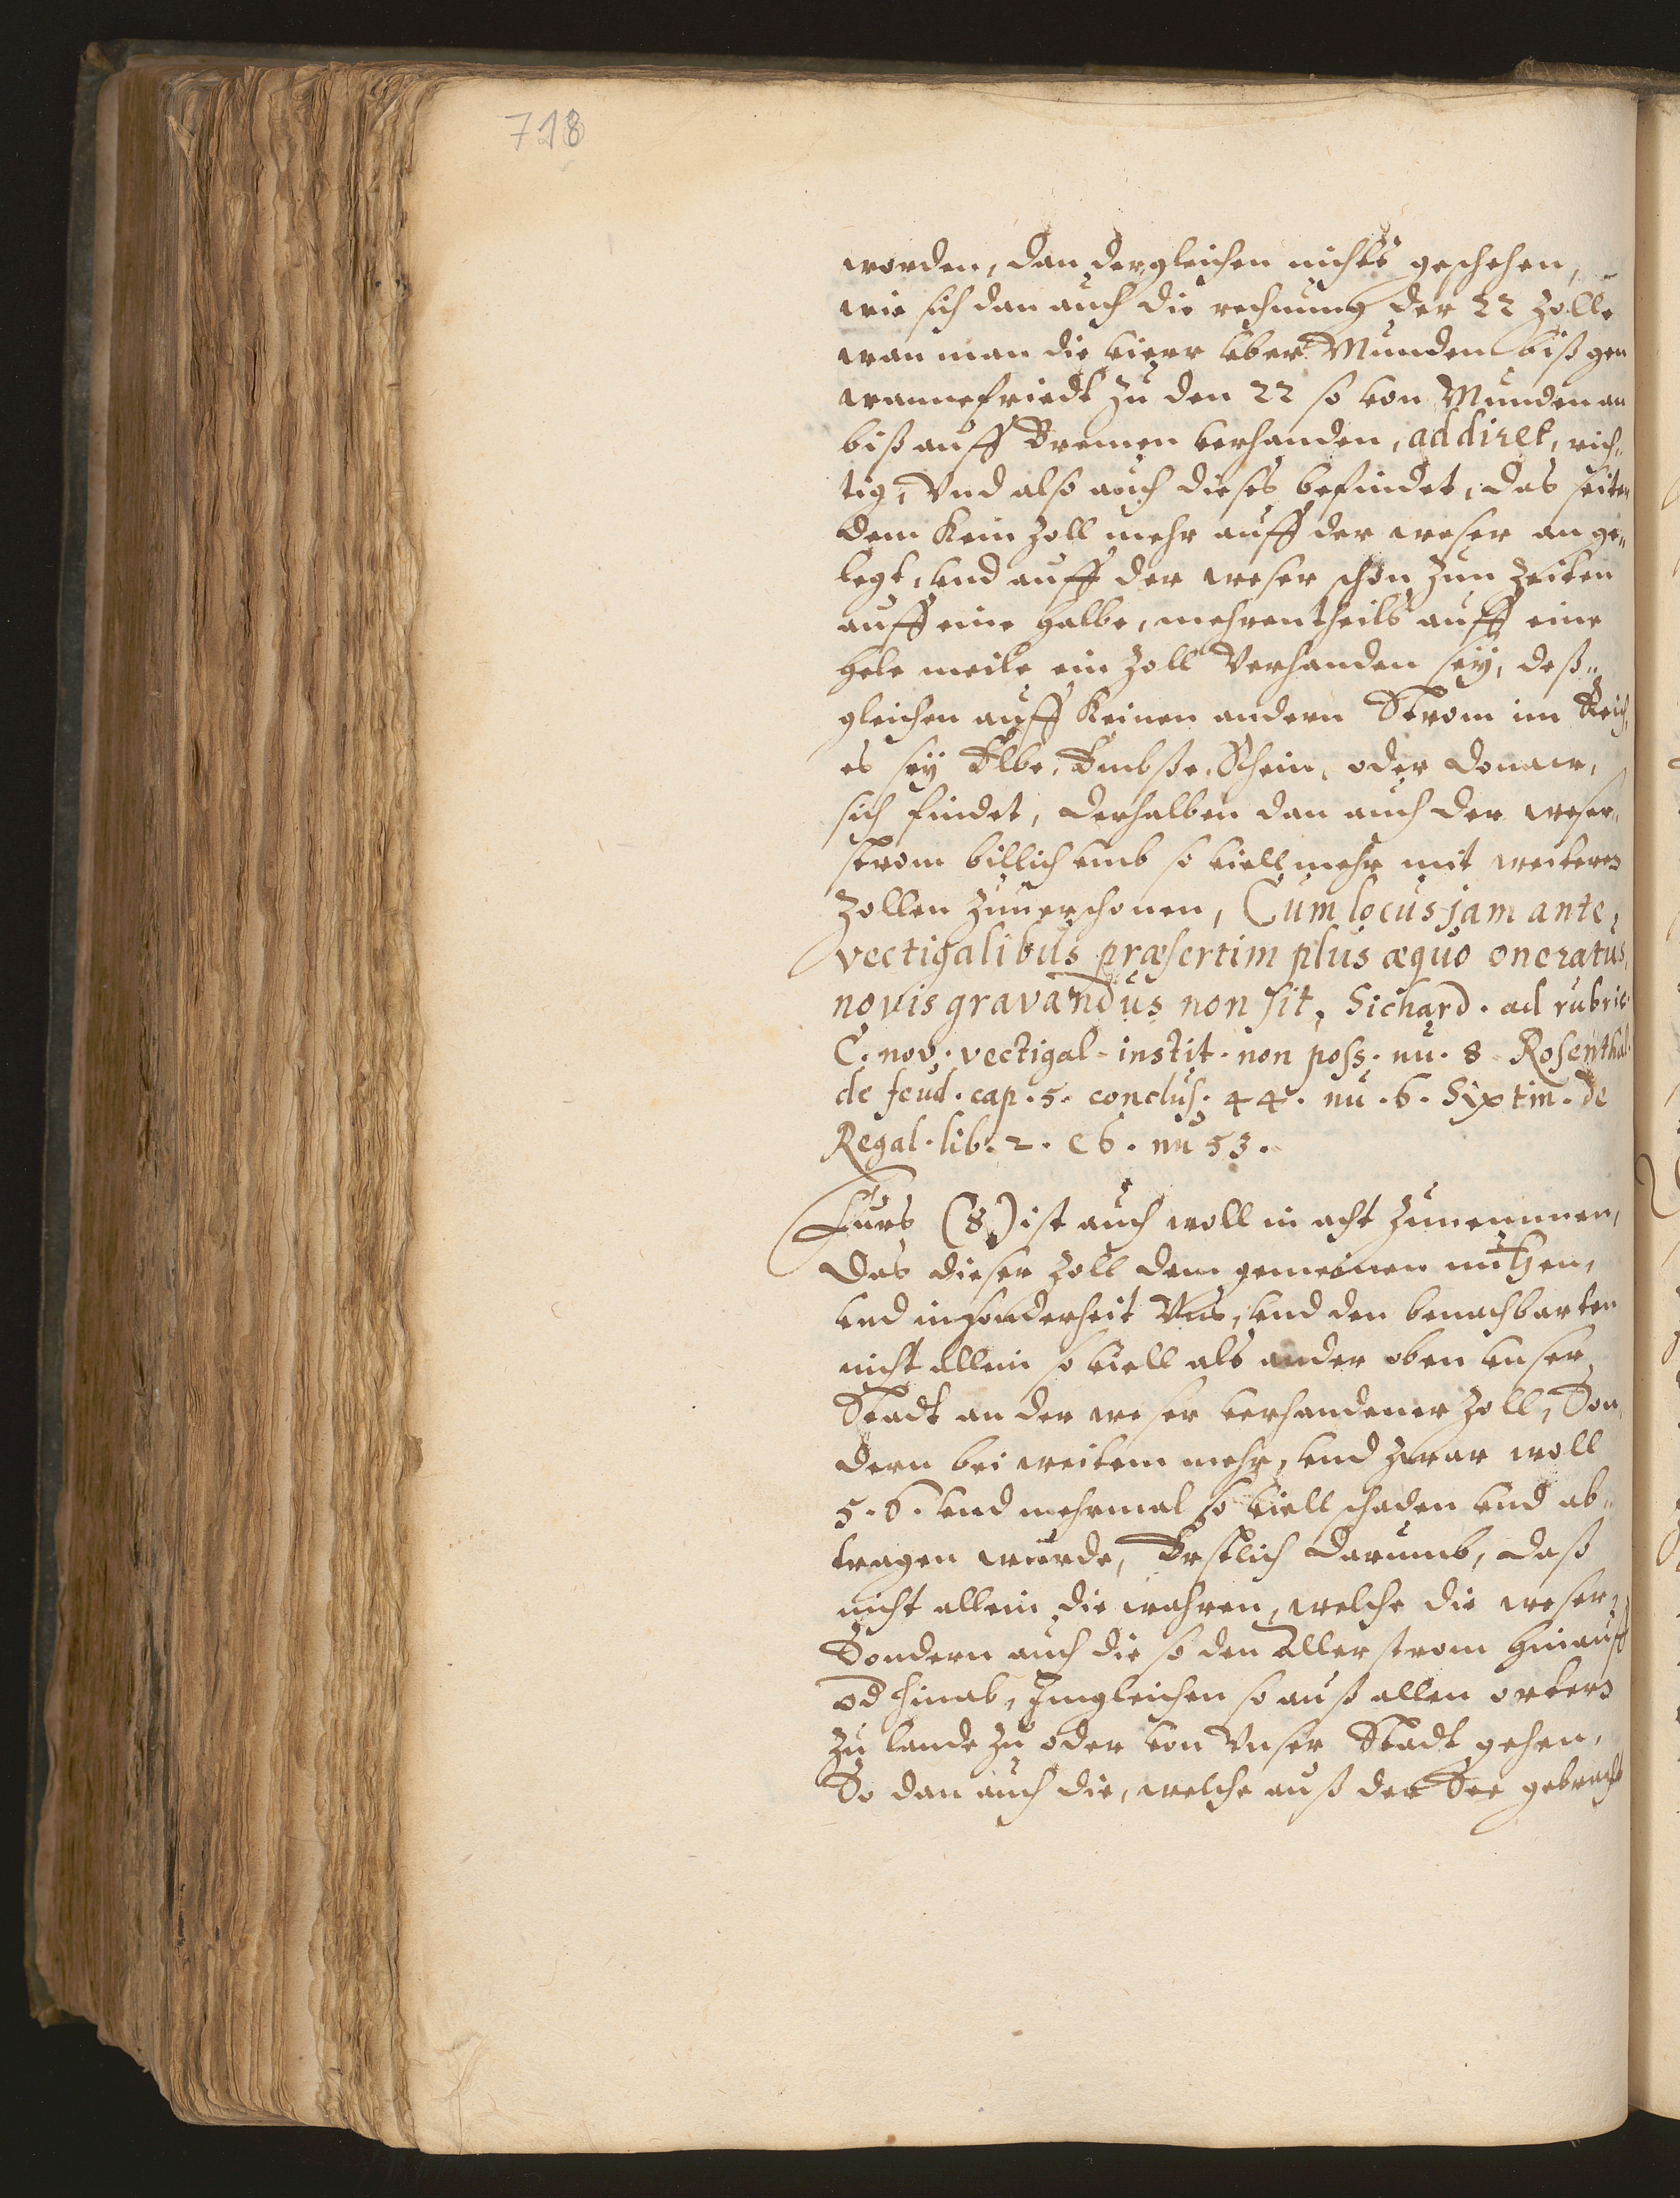 718
worden, dan dergleichen nichts geschehen,
wie sich dan auch die rechnung der 22 Zolle
wan man die vierr uber Munden biß gen
wannefriedt zu den 22 so von Munden an
biß auff Bremen verhanden, addiret, rich„
tig, Vnd also auch dieses befindet, das seiten
dem Kein Zoll mehr auff der weser an ge„
legt, und auff der weser schon zun Zeiten
auff eine halbe, mehrentheils auff eine
hele meile ein Zoll Verhanden seÿ, deß„
gleichen auff Keinen andern Strom im Reich,
es seÿ Elbe, Embße, Rhein, oder Donaw,
sich findet, Derhalben dan auch der weser„
strom billich umb so viell mehr mit weitern
Zollen Zuuerschonen, Cum locus jam ante,
vectigalibus præsertim plus æquo oneratus,
novis gravandus non sit, Sichard. ad rubric.
C. nov. vectigal. instit. non poss. nu. 8 Rosenthal.
de feud. cap. 5. conclus. 44. nu. 6. Sixtin. de
Regal. lib. 2. c 6. nu 53.
Furs (8) ist auch woll in acht Zunemmen,
Das dieser Zoll dem gemeinen nutzen,
und inzonderheit Vns, und den benachbarten
nicht allein so viell als ander oben unser
Stadt an der weser verhandener Zoll, Son„
dern bei weitem mehr, und zwar woll
5. 6. und mehrmal so viell schaden und ab„
tragen wurde, Erstlich Darumb, Daß
nicht allein die wahren, welche die weser,
Sondern auch die so den Aller strom hinauff
od hinab, Imgleichen so auß allen ortern
Zu lande Zu oder von Vnser Stadt gehen,
So dan auch die, welche auß der See gebracht